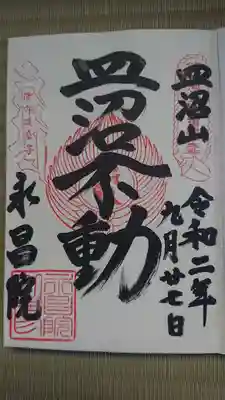 皿沼山
令和二年
九月廿七日
皿沼不動
永昌院